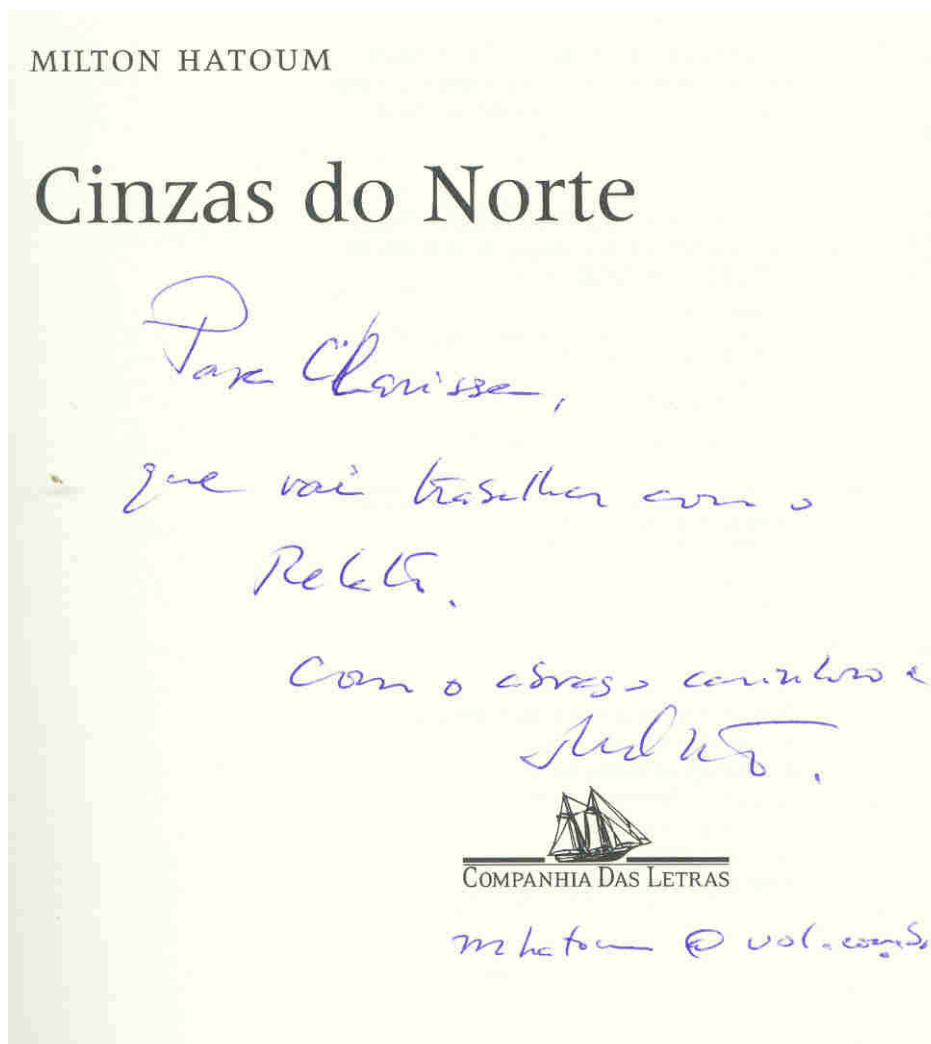 MILTON HATOUM
Cinzas do Norte
Para Clarisse,
que vai trabalhar com o
Relato.
Com o abraço carinhoso e
COMPANHIA DAS LETRAS
mhatoum @ uol.com.b